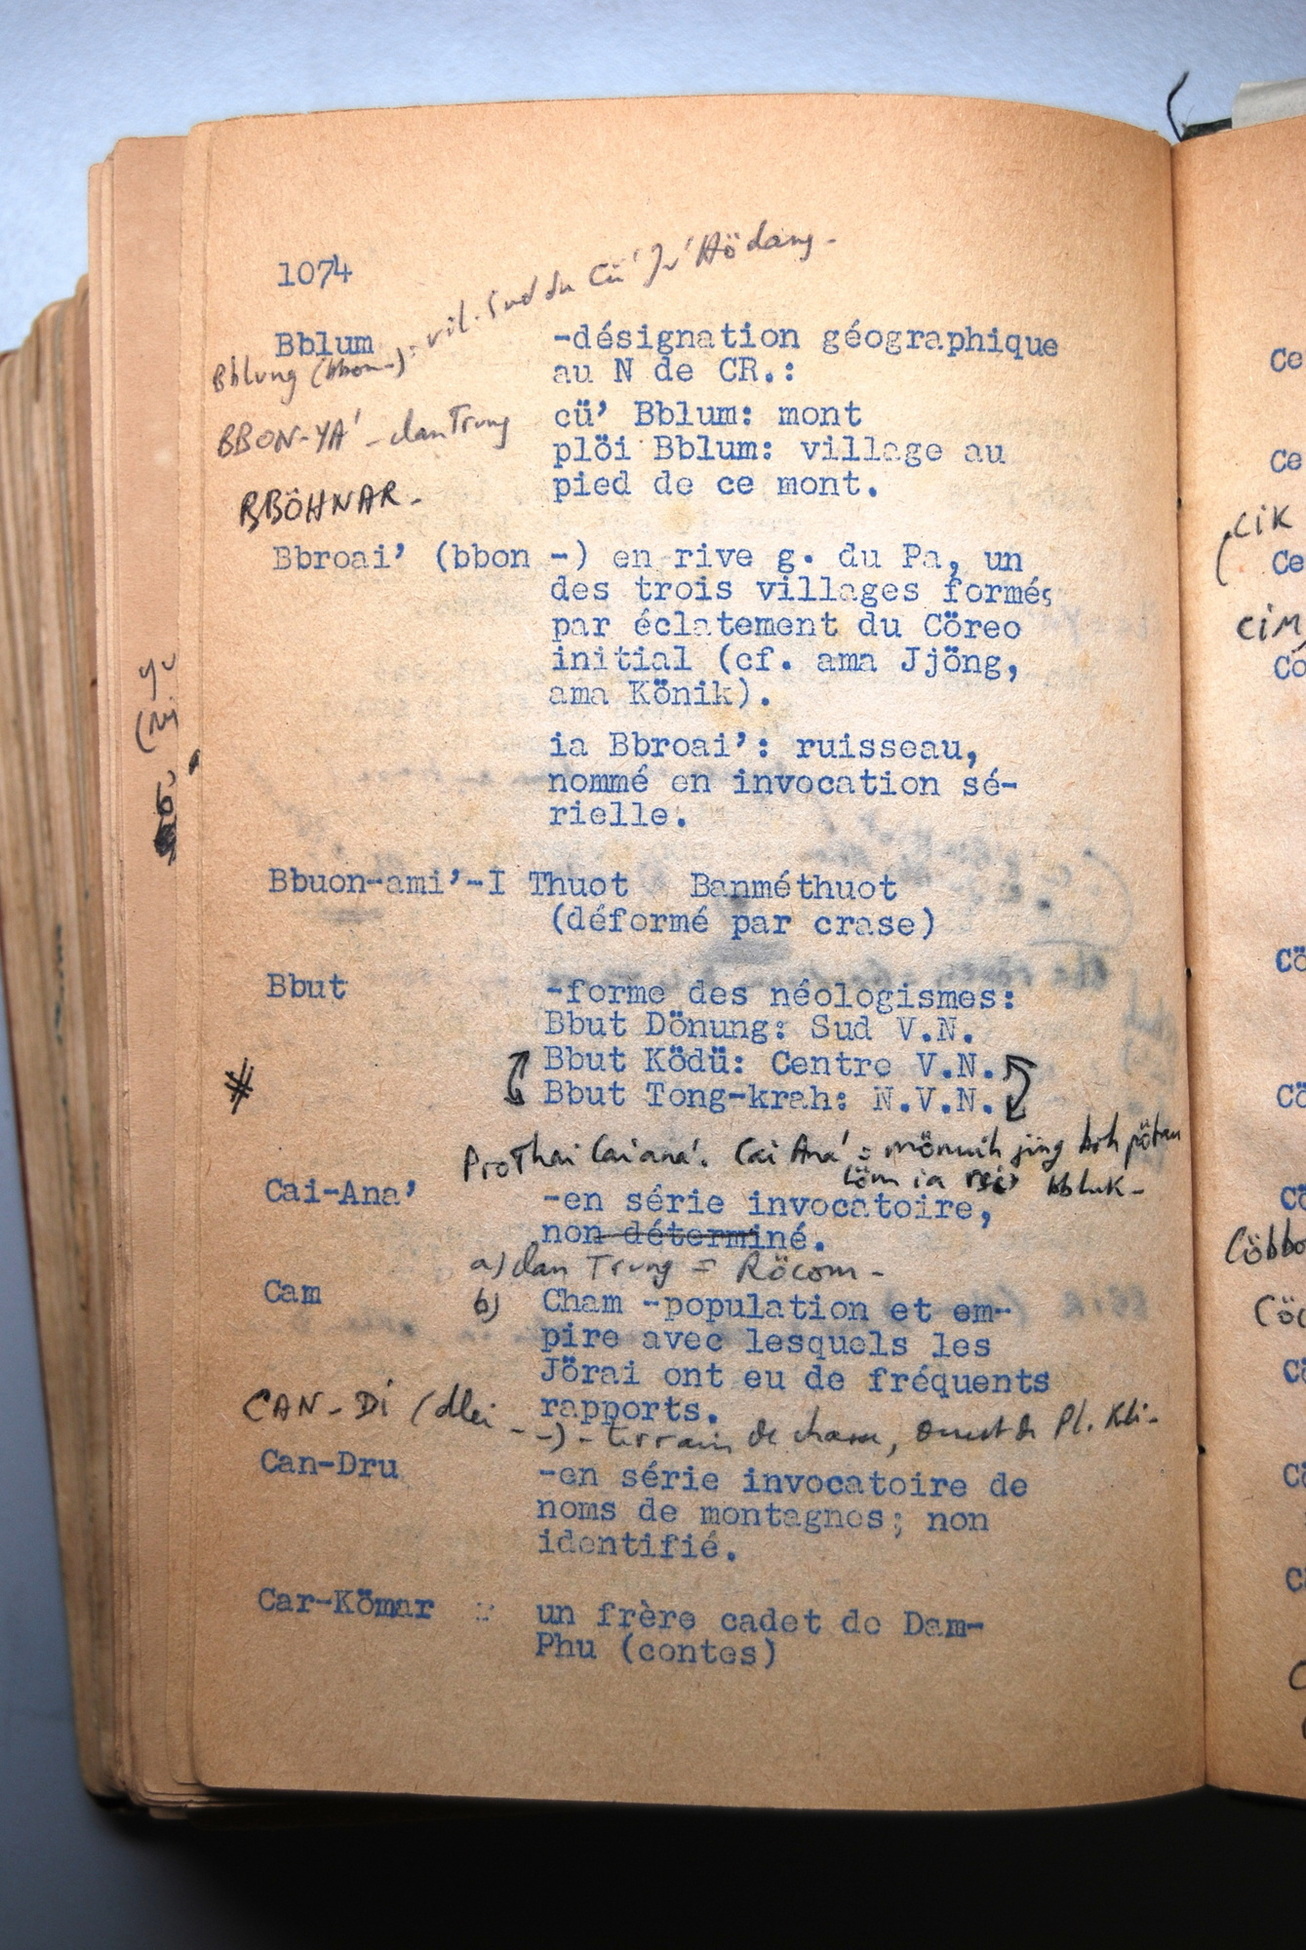 1074
Bblum -désignation géographique
Bblung (bbon-): vil. Sud du Cü' Ju' Hödang-
au N de CR.:
cü' Bblum: mont
BBON-YA' - clan Trung
plöi Bblum: village au
pied de ce mont.
BBÖHNAR-
Bbroai' (bbon -) en rive g. du Pa, un
des trois villages formés
par éclatement du Cöreo
initial (cf. ama Jjöng,
ama Könik).
ia Bbroai': ruisseau,
nommé en invocation sé-
rielle.
Bbuon-ami'-I Thuot Banméthuot
(déformé par crase)
Bbut -forme des néologismes:
Bbut Dönung: Sud V.N.
Bbut Ködü: Centre V.N.
Bbut Tong-krah: N.V.N.
Cai Ana' = mönuih jing boh
löm ia
Cai-Ana' -en série invocatoire,
non déterminé.
a) clan Trung = Röcom-
Cam b) Cham -population et em-
pire avec lesquels les
Jörai ont eu de fréquents
rapports.
CAN-DI (dlei --) - terrain de chasse, ouest de Pl. Kli-
Can-Dru -en série invocatoire de
noms de montagnes; non
identifié.
Car-Kömar : un frère cadet de Dam-
Phu (contes)
Ce
Ce
CIK
Ce
CIM
Cö
Cö
Cö
Cö
Cöbbo
Cö
Cö